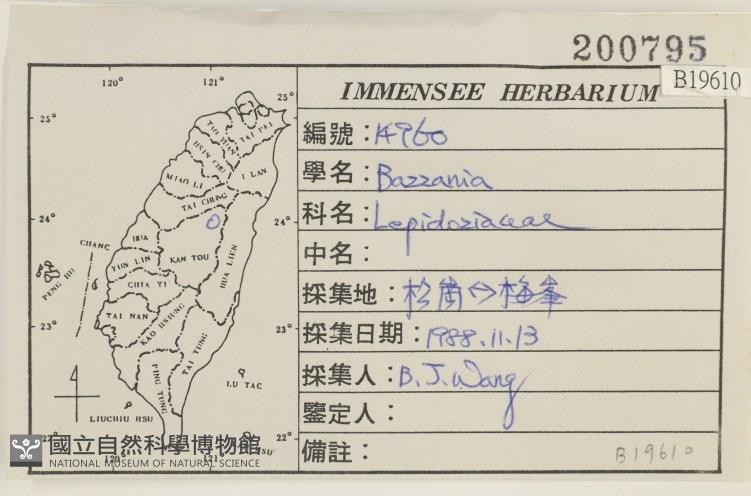 200795
B19610
IMMENSEE HERBARIUM
編號：14960
學名：Bazzania
科名：Lepidoziaceae
中名：
採集地：松崗↔梅峯
採集日期：1988.11.13
採集人：B.J.Wang
鑒定人：
備註：
B19610
120° 121°
25° 25°
TAI PEI
TAO YUAN
HSIN CHU
I LAN
MIAO LI
TAI CHUNG
24° 24°
CHANG HUA
HUA LIEN
YUN LIN
NAN TOU
PENG HU
CHIA YI
TAI NAN
KAO HSIUNG
23° 23°
TAI TUNG
PING TUNG
LU TAO
LIUCHIU HSU
22° 22°
120° 121°
HSU
國立自然科學博物館
NATIONAL MUSEUM OF NATURAL SCIENCE